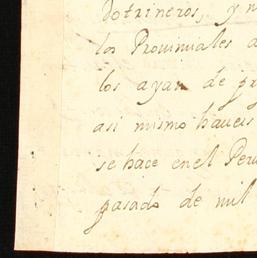 dotrineros, y
los Provinciales
los ayan de
asi mismo haveis
se hace en el Peru
pasado de mil